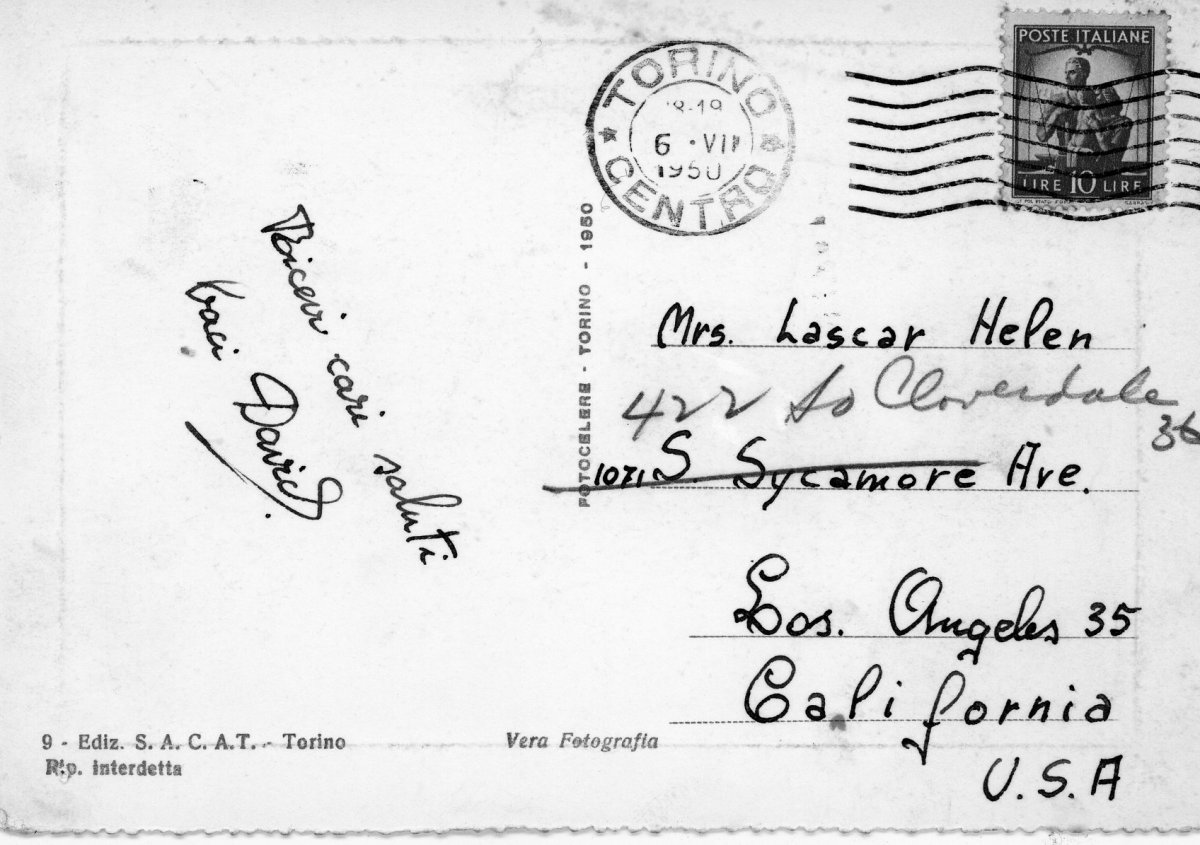 POSTE ITALIANE
LIRE 10 LIRE
TORINO
18-19
6 · VII
1950
CENTRO
FOTOCELERE - TORINO - 1950
Ricevi cari saluti
baci David.
Mrs. Lascar Helen
422 So Cloverdale
36
1071 S. Sycamore Ave.
Los. Angeles 35
California
U.S.A
9 - Ediz. S. A. C. A. T. - Torino
Rip. interdetta
Vera Fotografia